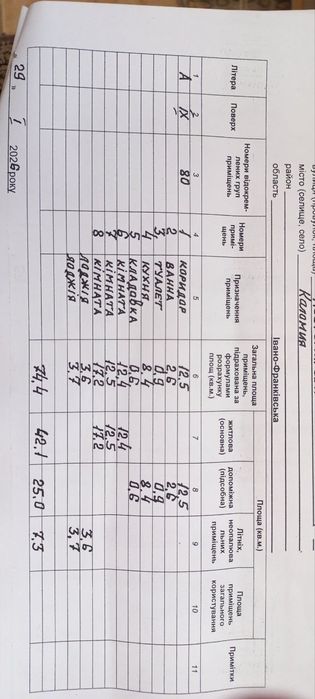 місто (селище, село) Каломия
район
область Івано-Франківська
Літера Поверх Номери відокрем- лених груп приміщень Номери примі- щень Призначення приміщень Загальна площа приміщень, підрахована за формулами розрахунку площ (кв.м.) Площа (кв.м.)
житлова (основна) допоміжна (підсобна) Літніх, неопалюва льних приміщень Площа приміщень загального користування Примітки
1 2 3 4 5 6 7 8 9 10 11
А IX 80 1 коридор 12,5 12,5
2 ванна 2,6 2,6
3 туалет 0,9 0,9
4 кухня 8,4 8,4
5 кладовка 0,6 0,6
6 кімната 12,4 12,4
7 кімната 12,5 12,5
8 кімната 17,2 17,2
лоджія 3,6 3,6
лоджія 3,7 3,7
74,4 42.1 25.0 7.3
29 » I 2026 року